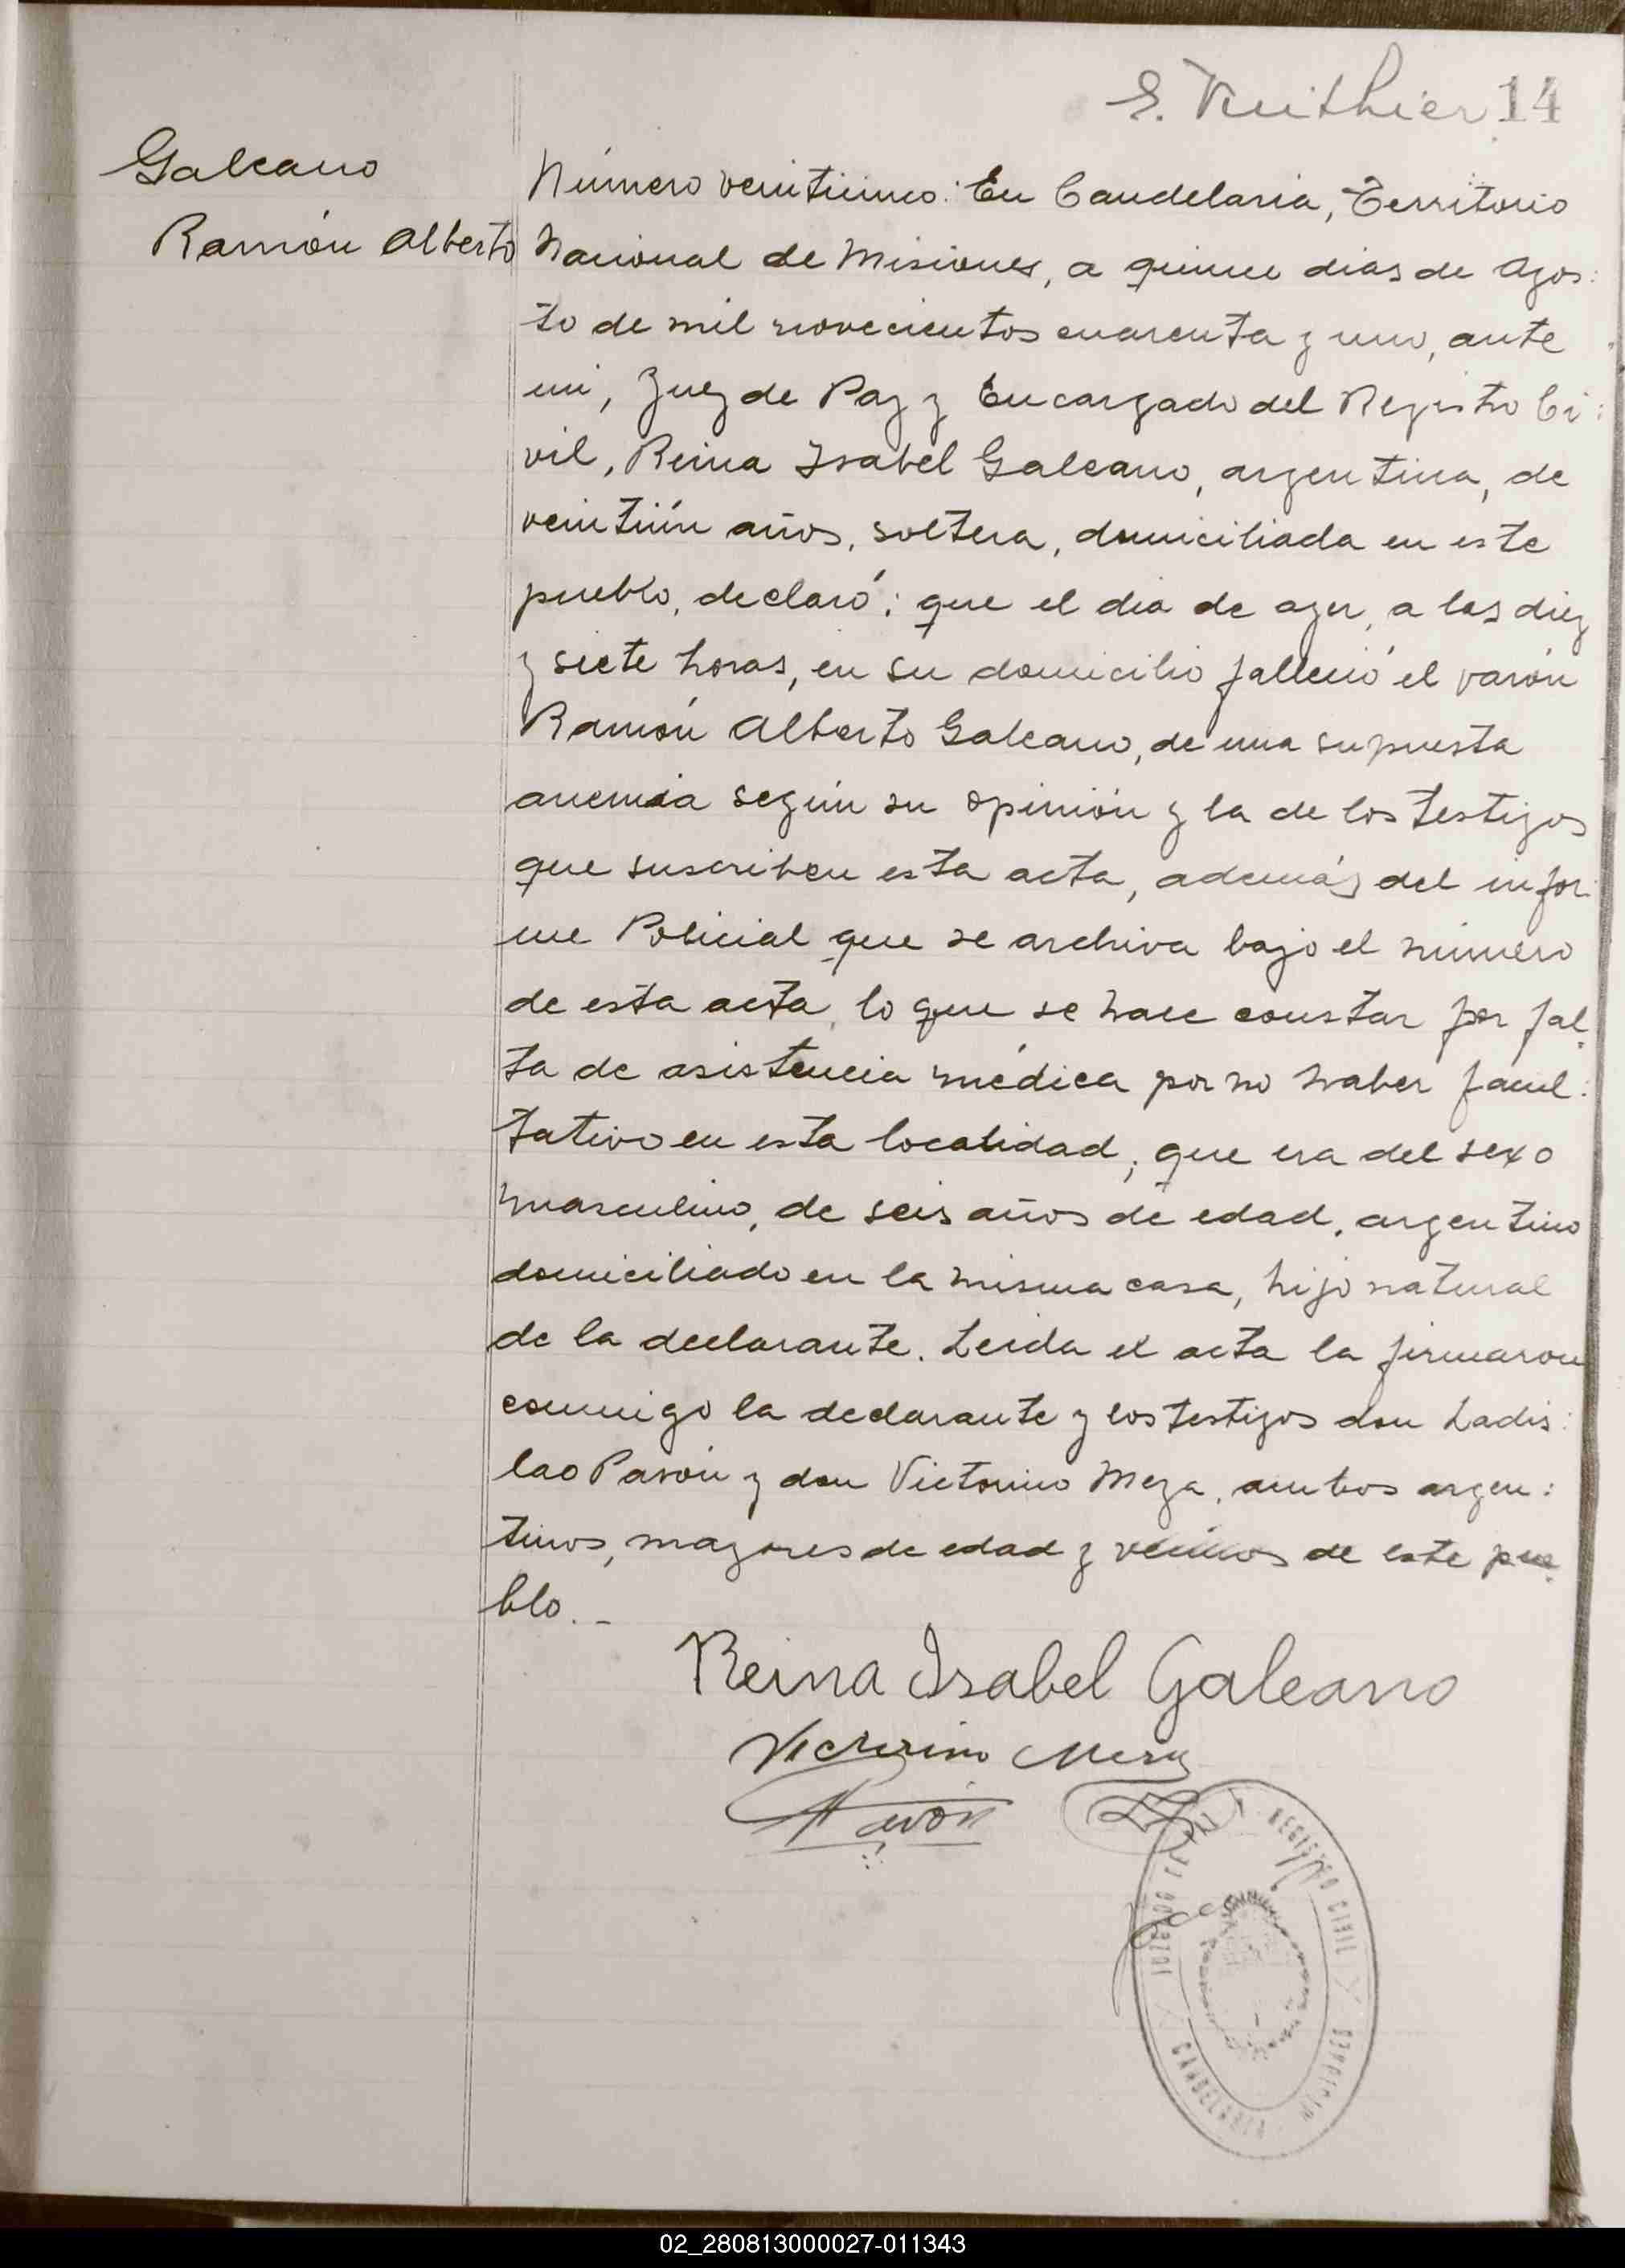 E. Vuithier 14
Galeano
Ramón Alberto
Número veinticinco: En Candelaria, Territorio
Nacional de Misiones, a quince dias de Agos:
to de mil novecientos cuarenta y uno, ante
mi, Juez de Paz y Encargado del Registro Ci:
vil, Reina Isabel Galeano, argentina, de
veintiún años, soltera, domiciliada en este
pueblo, declaró: que el dia de ayer, a las diez
y siete horas, en su domicilio falleció el varón
Ramón Alberto Galeano, de una supuesta
anemia según su opinión y la de los testigos
que suscriben esta acta, además del infor
me Policial que se archiva bajo el número
de esta acta, lo que se hace constar por fal
ta de asistencia médica por no haber facul:
tativo en esta localidad; que era del sexo
masculino, de seis años de edad, argentino
domiciliado en la misma casa, hijo natural
de la declarante. Leida el acta la firmaron
conmigo la declarante y los testigos don Ladis:
lao Pavón y don Victorino Meza, ambos argen:
tinos, mayores de edad y vecinos de este pue
blo._
Reina Isabel Galeano
Victorino Meza
Pavón
JUZGADO DE PAZ Y REGISTRO CIVIL
CANDELARIA MISIONES
02_280813000027-011343